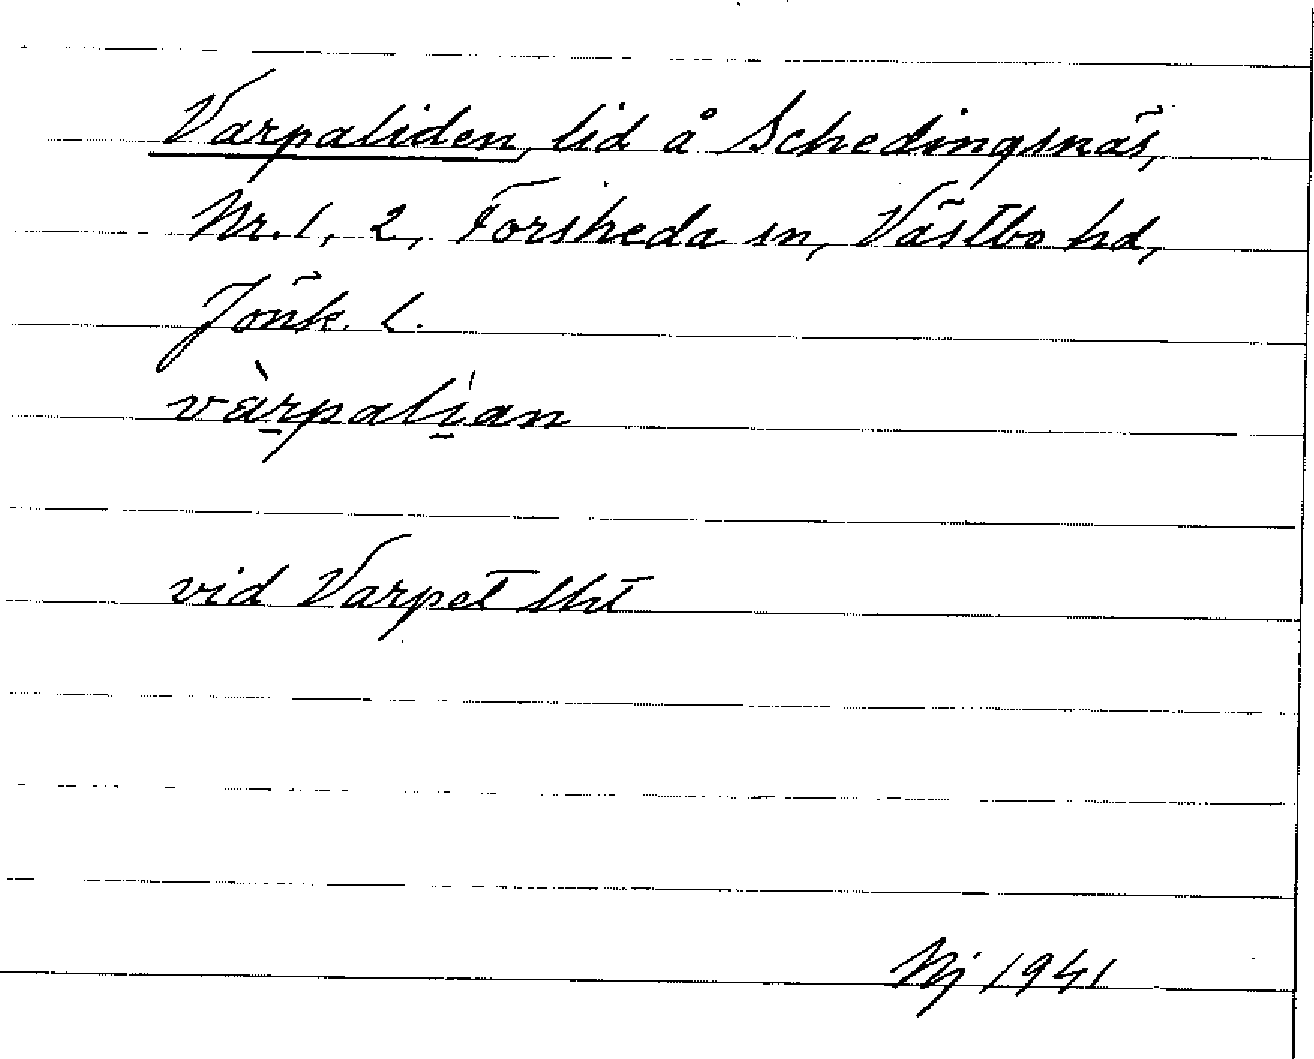 Varpaliden, lid å Schedingsnäs,
Nr. 1, 2, Forsheda sn, Västbo hd,
Jönk. l.
vàrpalian
vid Varpet skt
Nj 1941